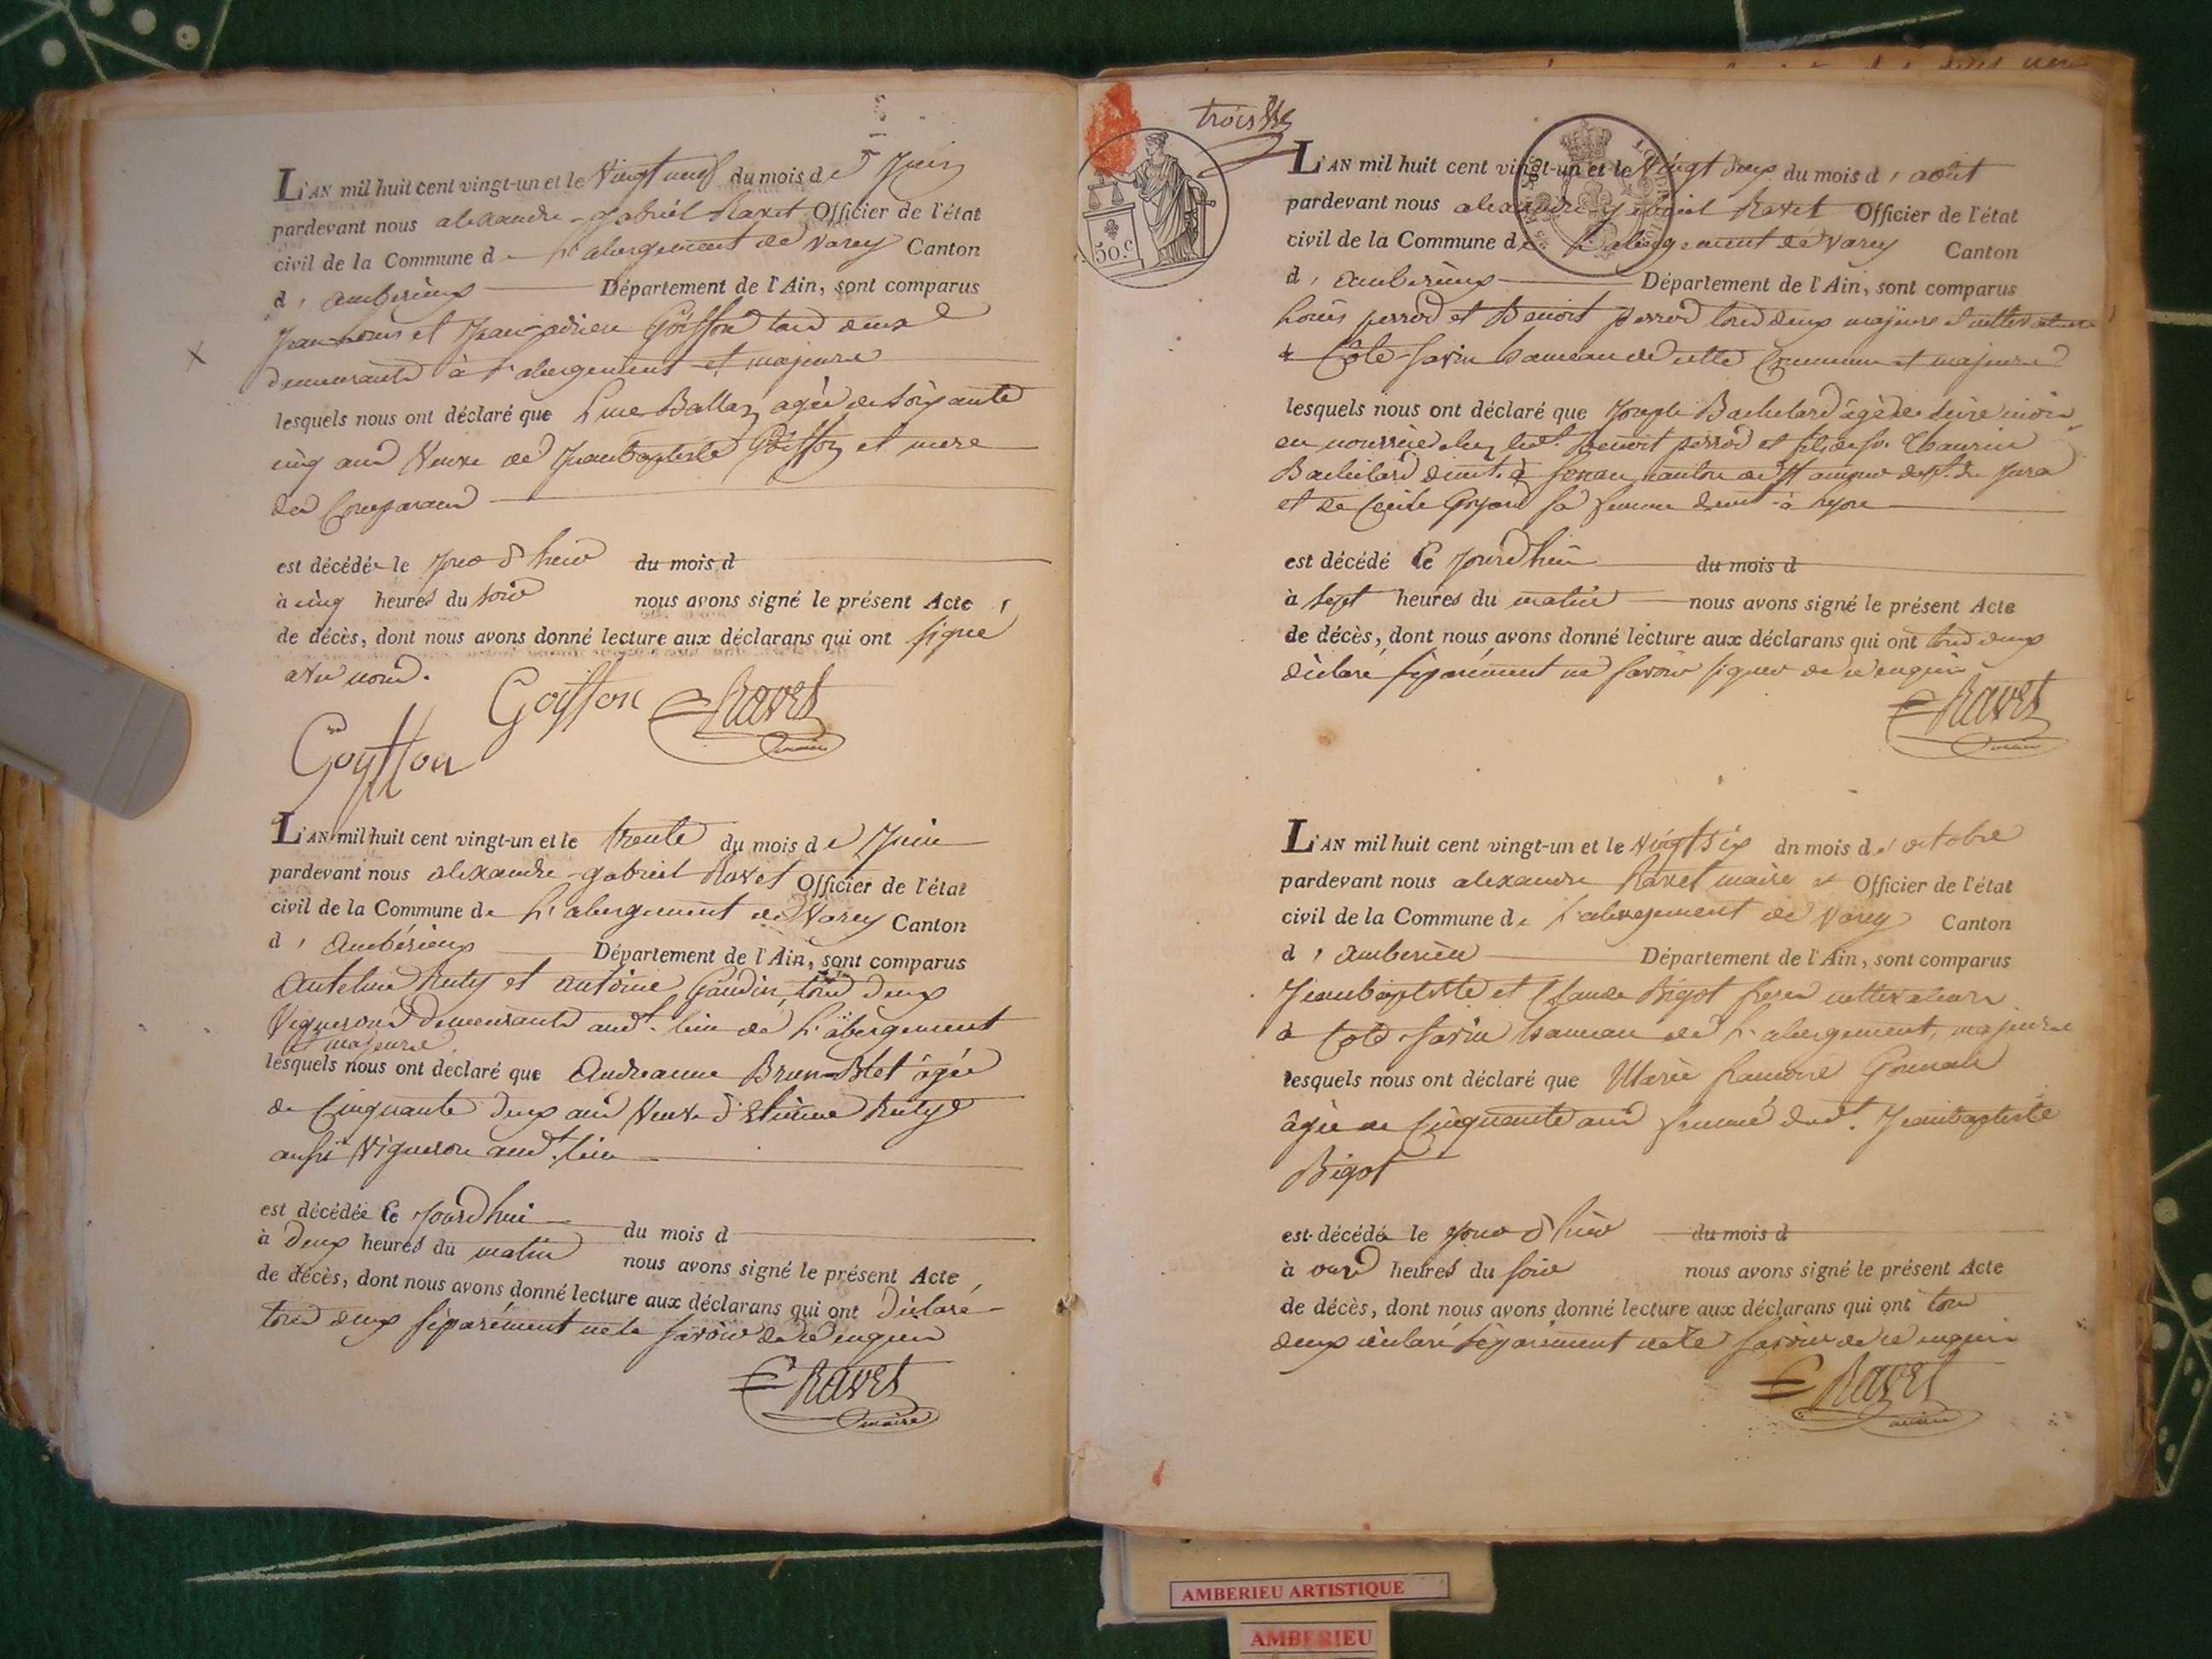 L'AN mil huit cent vingt-un et le Vingt neuf du mois de Juin
pardevant nous alexandre-gabriel Ravet Officier de l'état
civil de la Commune de L'abergement de Varey Canton
d'amberieux Département de l'Ain, sont comparus
Jean Louis et Jean-adrien Goiffon tous deux
demeurants à L'abergement et majeurs
lesquels nous ont déclaré que Luce Ballaz agée de soixante
cinq ans Veuve de Jeanbaptiste Goiffon et mere
des Comparans
est décédée le jour d'huir du mois d
à cinq heures du soir nous avons signé le présent Acte
de décès, dont nous avons donné lecture aux déclarans qui ont signé
avec nous.
Goiffon Ravet
maire
Goyffon
L'AN mil huit cent vingt-un et le trente du mois de Juin
pardevant nous alexandre-gabriel Ravet Officier de l'état
civil de la Commune de L'abergement de Varey Canton
d'Ambérieux Département de l'Ain, sont comparus
Antelme Ruty et Antoine Gaudin, tous deux
Vignerons demeurants aud. lieu de L'abergement
et majeurs
lesquels nous ont déclaré que Andreanne Brun-Blet agée
de Cinquante deux ans Veuve d'Etienne Ruty
aussi Vigneron aud. lieu
est décédée ce jourdhui du mois d
à deux heures du matin nous avons signé le présent Acte
de décès, dont nous avons donné lecture aux déclarans qui ont déclaré
tous deux séparément ne le savoir de ce enquis
Ravet
maire
trois
50.c
L'AN mil huit cent vingt-un et le Vingt deux du mois d'août
pardevant nous alexandre gabriel Ravet Officier de l'état
civil de la Commune de L'abergement de Varey Canton
d'amberieux Département de l'Ain, sont comparus
Louis perrod et Benoit perrod tous deux majeurs et cultivateurs
à Côte-Savin hameau de cette Commune et majeurs
lesquels nous ont déclaré que Joseph Bachelard âgé de seize mois
en nourrice chez led. Benoit perrod et fils de
Bachelard demt. à canton de St amour dept. du Jura
et de Cecile Goyard sa femme demt. à Lyon
est décédé ce jourdhui du mois d
à sept heures du matin nous avons signé le présent Acte
de décès, dont nous avons donné lecture aux déclarans qui ont tous deux
déclaré séparément ne savoir signer de ce enquis
Ravet
maire
L'AN mil huit cent vingt-un et le Vingt six du mois d'octobre
pardevant nous alexandre Ravet maire et Officier de l'état
civil de la Commune de L'abergement de Varey Canton
d'amberieu Département de l'Ain, sont comparus
Jeanbaptiste et Claude Bigot freres cultivateurs
à Cote-Savin hameau de L'abergement, majeurs
lesquels nous ont déclaré que Marie
âgée de Cinquante ans femme dud. Jeanbaptiste
Bigot
est décédée le jour d'huir du mois d
à onze heures du soir nous avons signé le présent Acte
de décès, dont nous avons donné lecture aux déclarans qui ont tous
deux déclaré séparément ne le savoir de ce enquis
Ravet
maire
AMBERIEU ARTISTIQUE
AMBERIEU